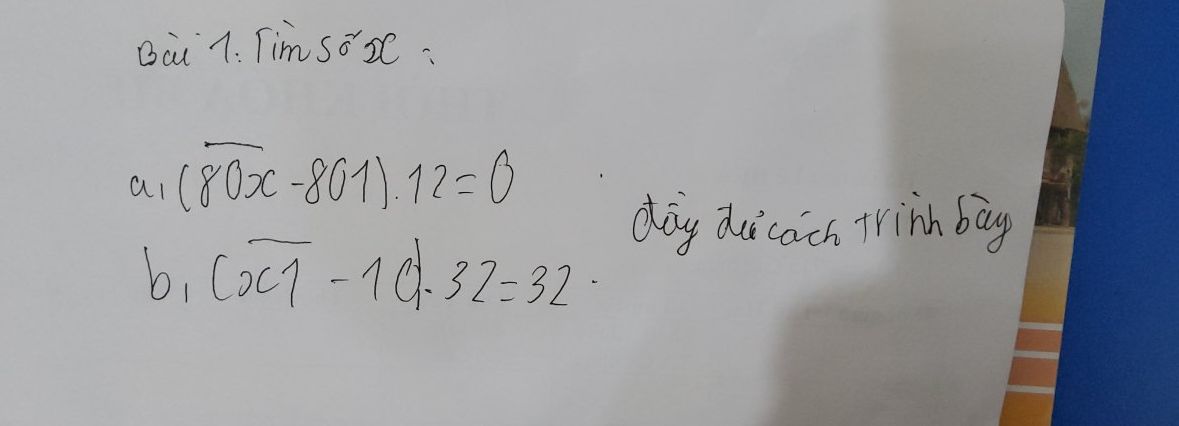 Bài 1. Tìm số x :
a, (\overline{80x} - 801) . 12 = 0
đầy đủ cách trình bày
b, (\overline{x1} - 10) . 32 = 32 .